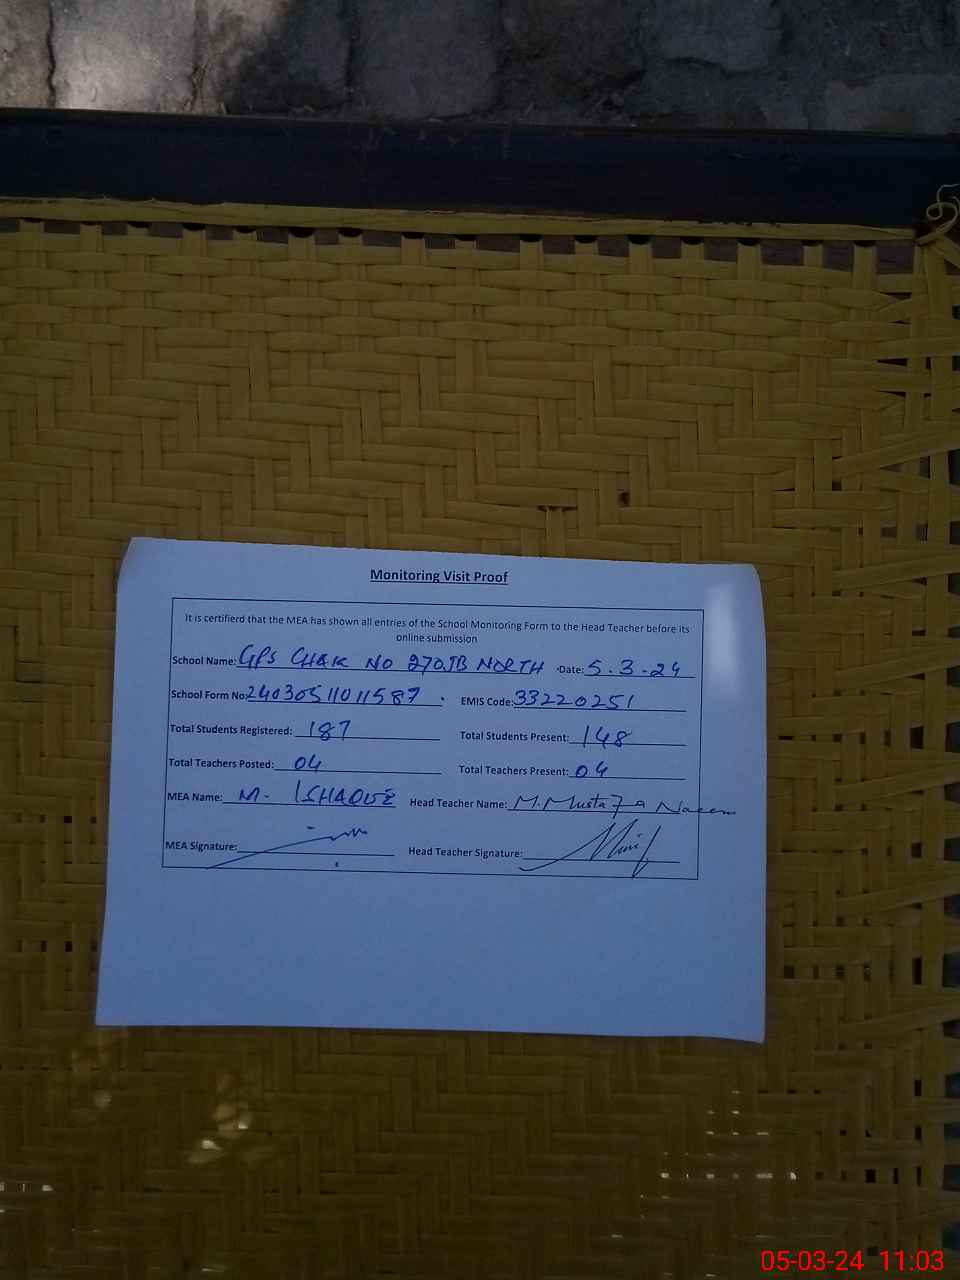 Monitoring Visit Proof
It is certifierd that the MEA has shown all entries of the School Monitoring Form to the Head Teacher before its
online submission
School Name: GPS CHAK NO 270JB NORTH Date: 5.3.24
School Form No: 2403051101 1587 EMIS Code: 33220251
Total Students Registered: 187 Total Students Present: 148
Total Teachers Posted: 04 Total Teachers Present: 04
MEA Name: M. ISHAQUE Head Teacher Name: M. Mustafa Naeem
MEA Signature: Head Teacher Signature:
05-03-24 11:03